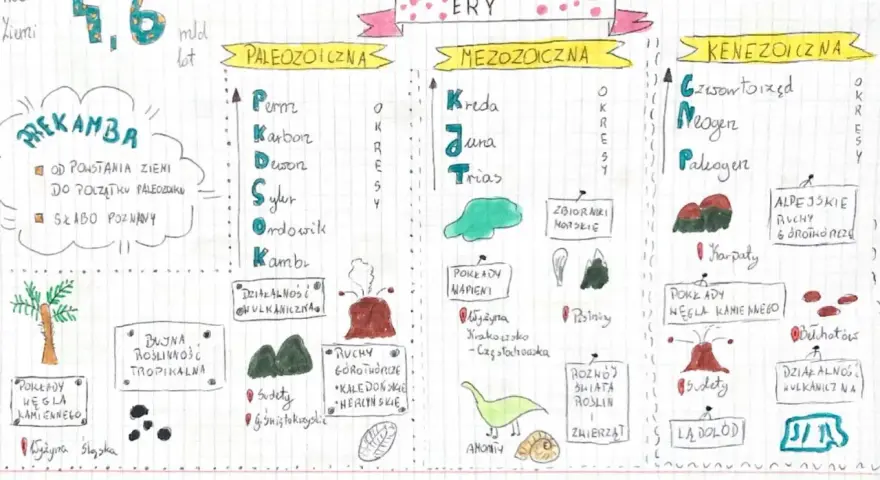 Ziemi
4,6
mld
lat
ERY
PREKAMBR
OD POWSTANIA ZIEMI
DO POCZĄTKU PALEOZOIKU
SŁABO POZNANY
PALEOZOICZNA
OKRESY
Perm
Karbon
Dewon
Sylur
Ordowik
Kambr
BUJNA
ROŚLINNOŚĆ
TROPIKALNA
POKŁADY
WĘGLA
KAMIENNEGO
Wyżyna Śląska
DZIAŁALNOŚĆ
WULKANICZNA
Sudety
G. Świętokrzyskie
RUCHY
GÓROTWÓRCZE
• KALEDOŃSKIE
• HERCYŃSKIE
MEZOZOICZNA
OKRESY
Kreda
Jura
Trias
ZBIORNIKI
MORSKIE
POKŁADY
WAPIENI
Wyżyna
Krakowsko
- Częstochowska
Pieniny
ROZWÓJ
ŚWIATA
ROŚLIN
I
ZWIERZĄT
AMONITY
KENEZOICZNA
OKRESY
Czwartorzęd
Neogen
Paleogen
ALPEJSKIE
RUCHY
GÓROTWÓRCZE
Karpaty
POKŁADY
WĘGLA KAMIENNEGO
Bełchatów
Sudety
DZIAŁALNOŚĆ
WULKANICZNA
LĄDOLÓD